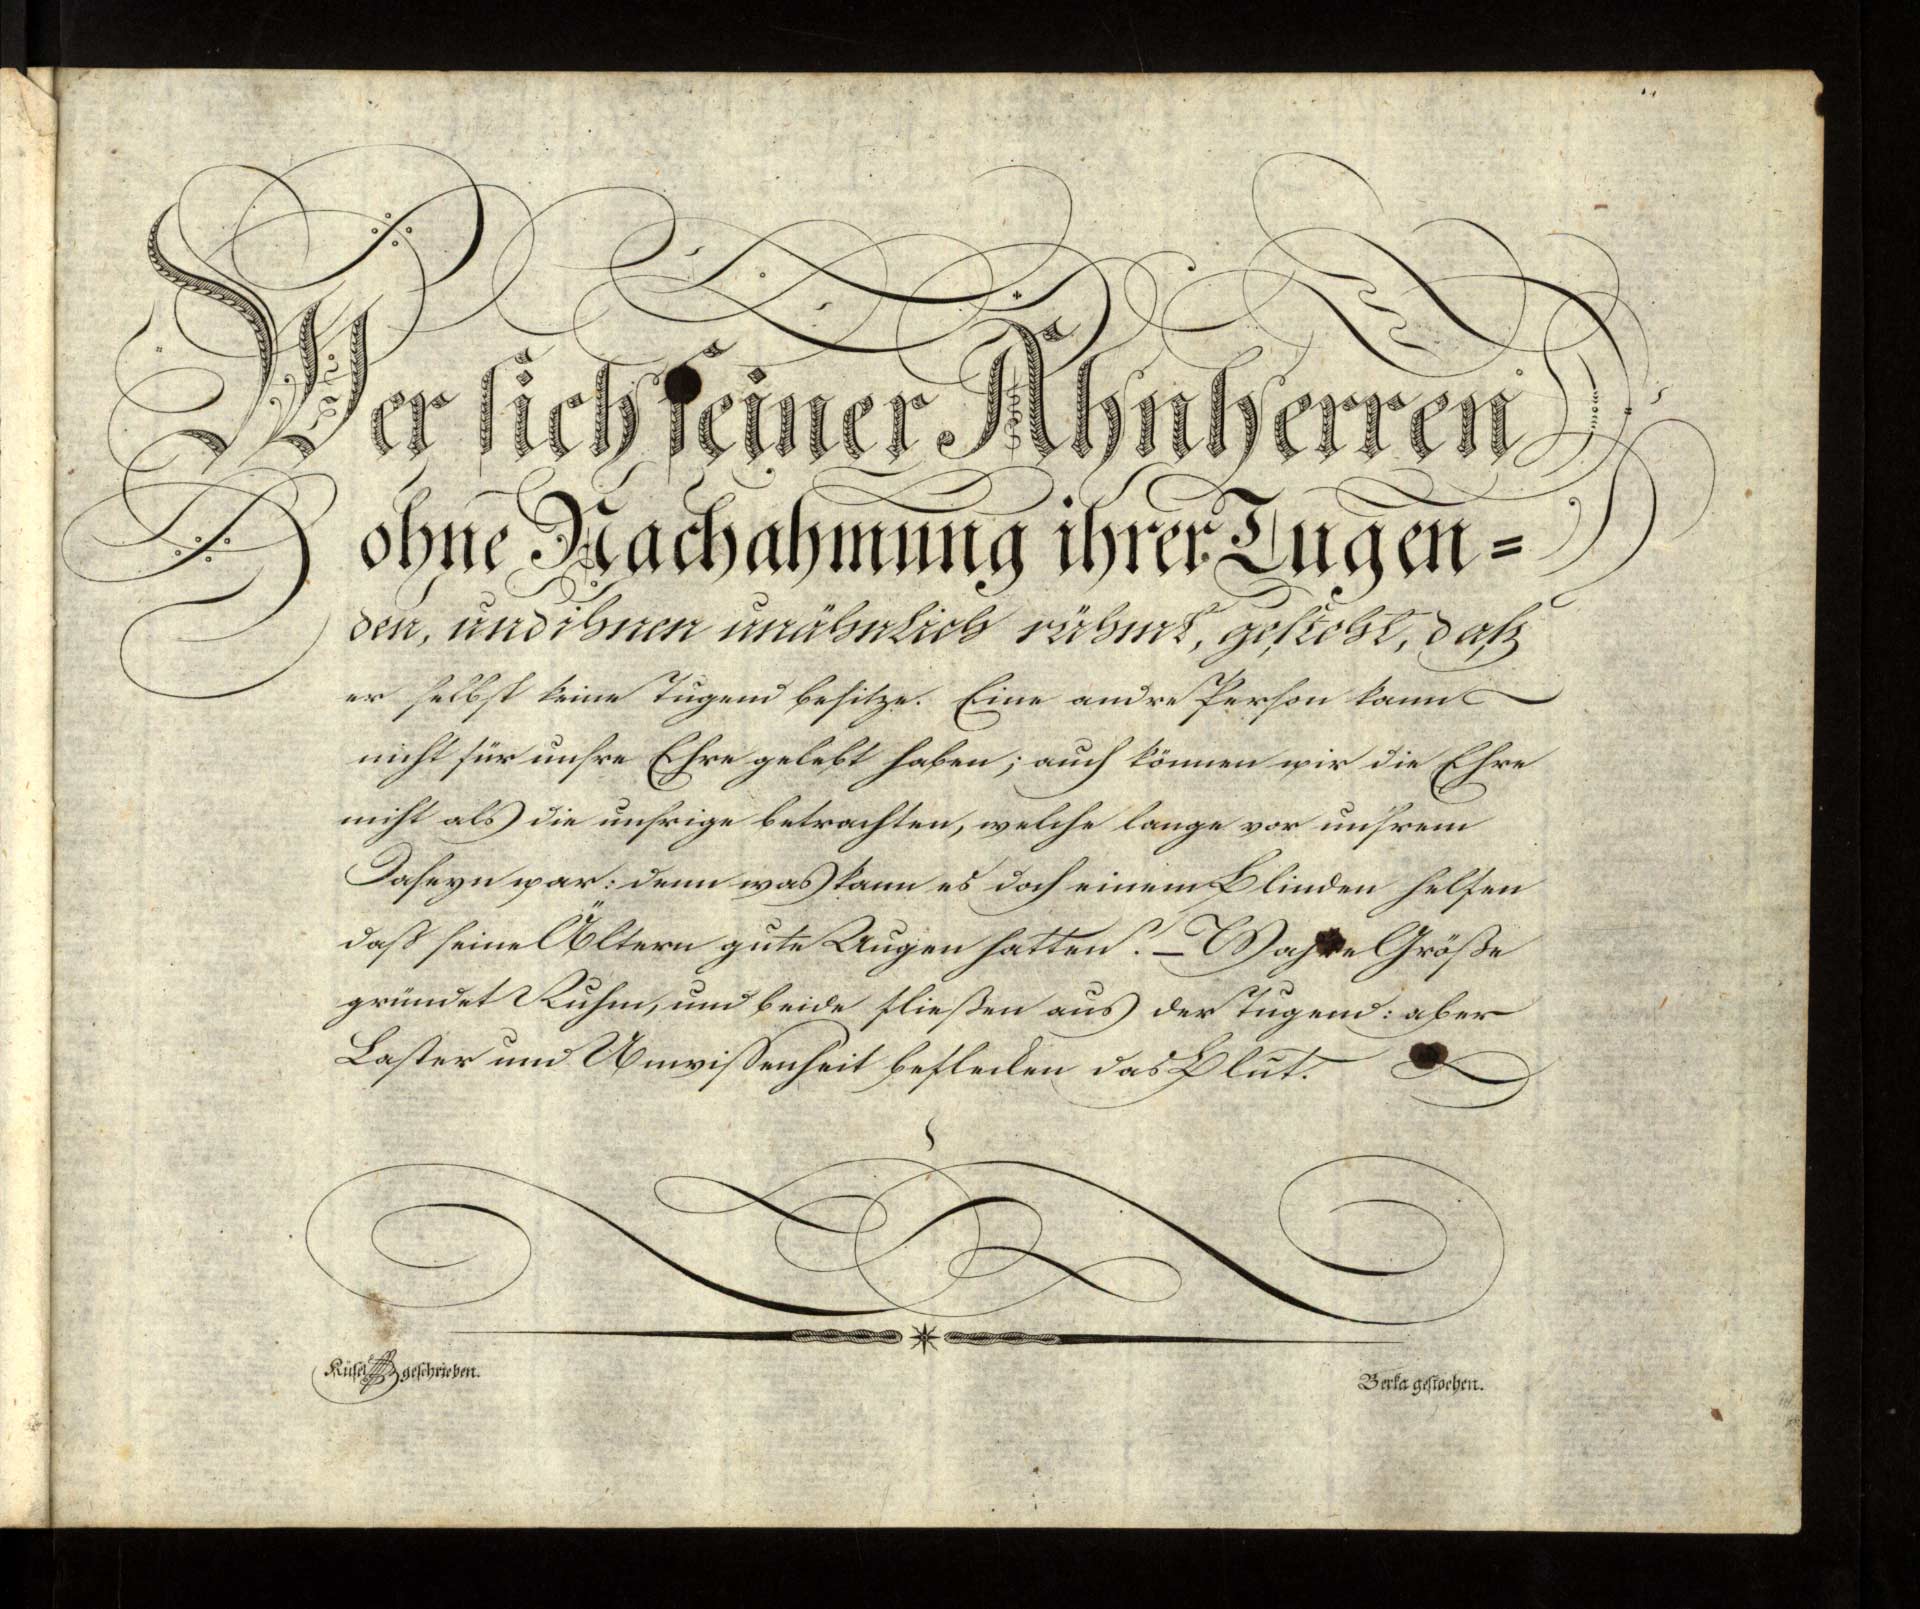 Wer sich seiner Ahnherren
ohne Nachahmung ihrer Tugen=
den, und ihnen unähnlich rühmt, gesteht, daß
er selbst keine Tugend besitze. Eine andre Person kann
nicht für unsre Ehre gelebt haben; auch können wir die Ehre
nicht als die unsrige betrachten, welche lange vor unsrem
Daseyn war: denn was kann es doch einem Blinden helfen
daß seine Ältern gute Augen hatten? – Wahre Größe
gründet Ruhm, und beide fließen aus der Tugend: aber
Laster und Unwissenheit beflecken das Blut.
Küsel geschrieben.
Berka gestochen.